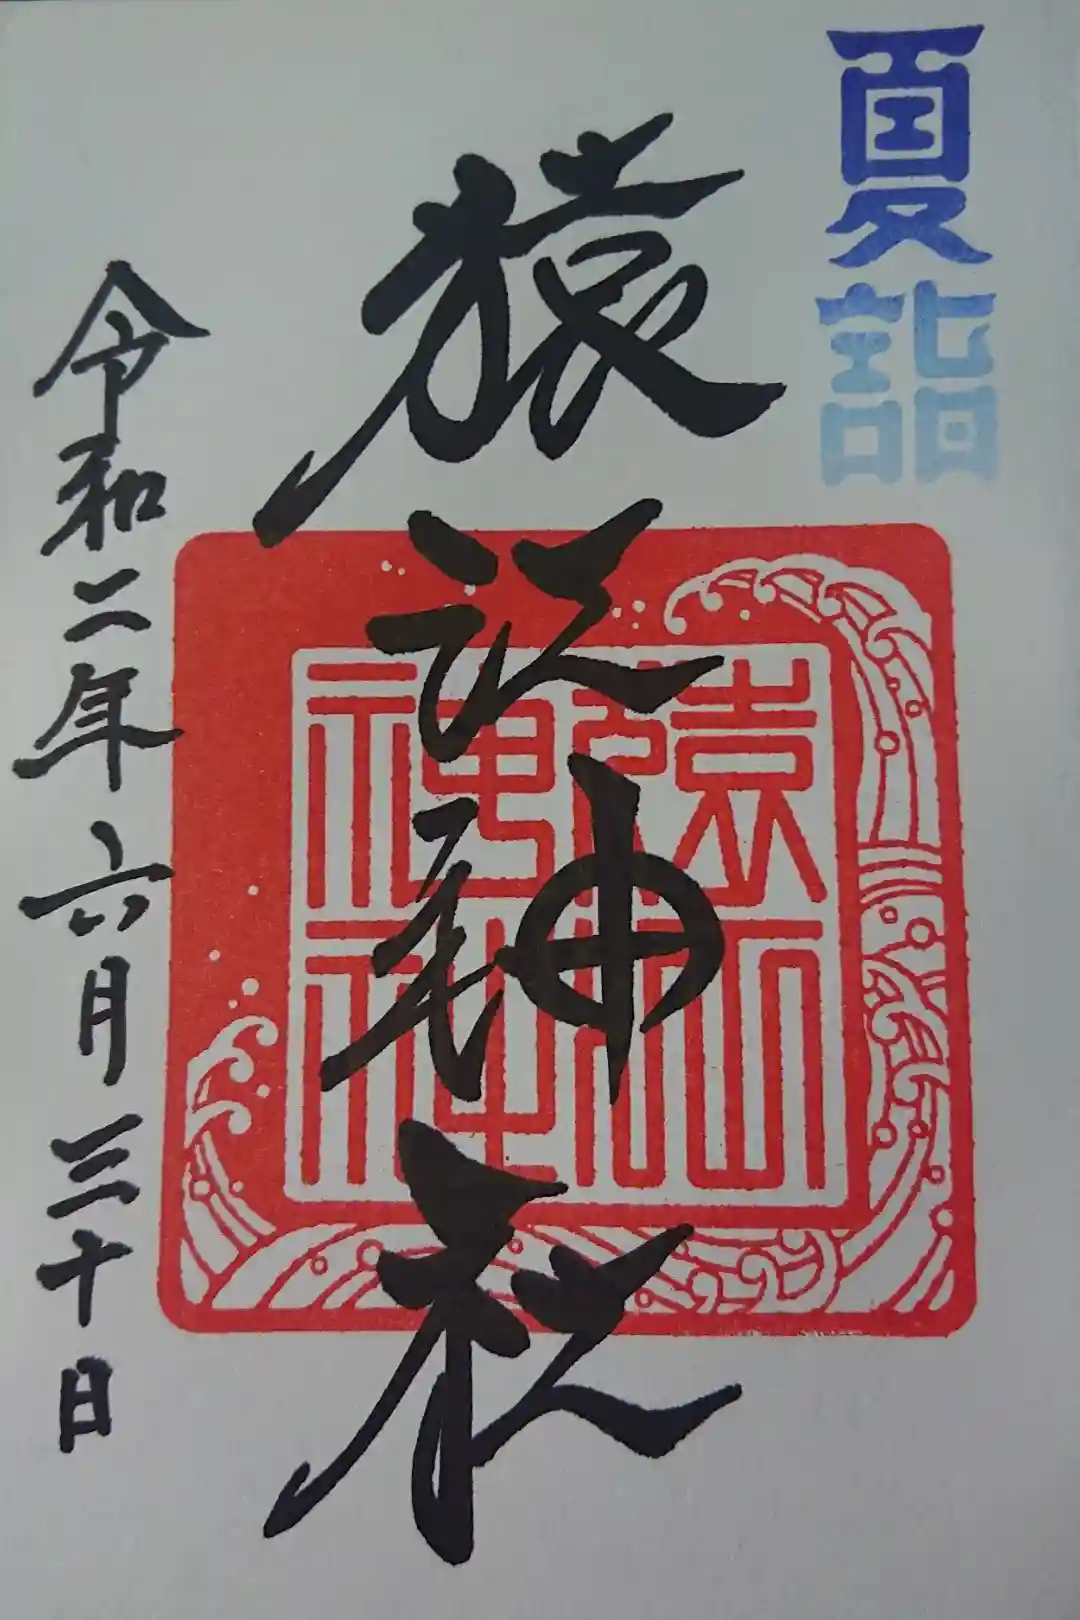 夏詣
猿江神社
猿江神社
令和二年六月三十日